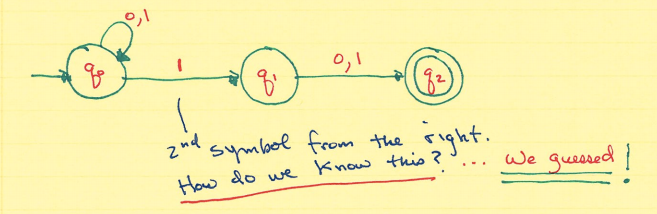 0,1
q0 1 q1 0,1 q2
2nd symbol from the right.
How do we know this? ... We guessed!